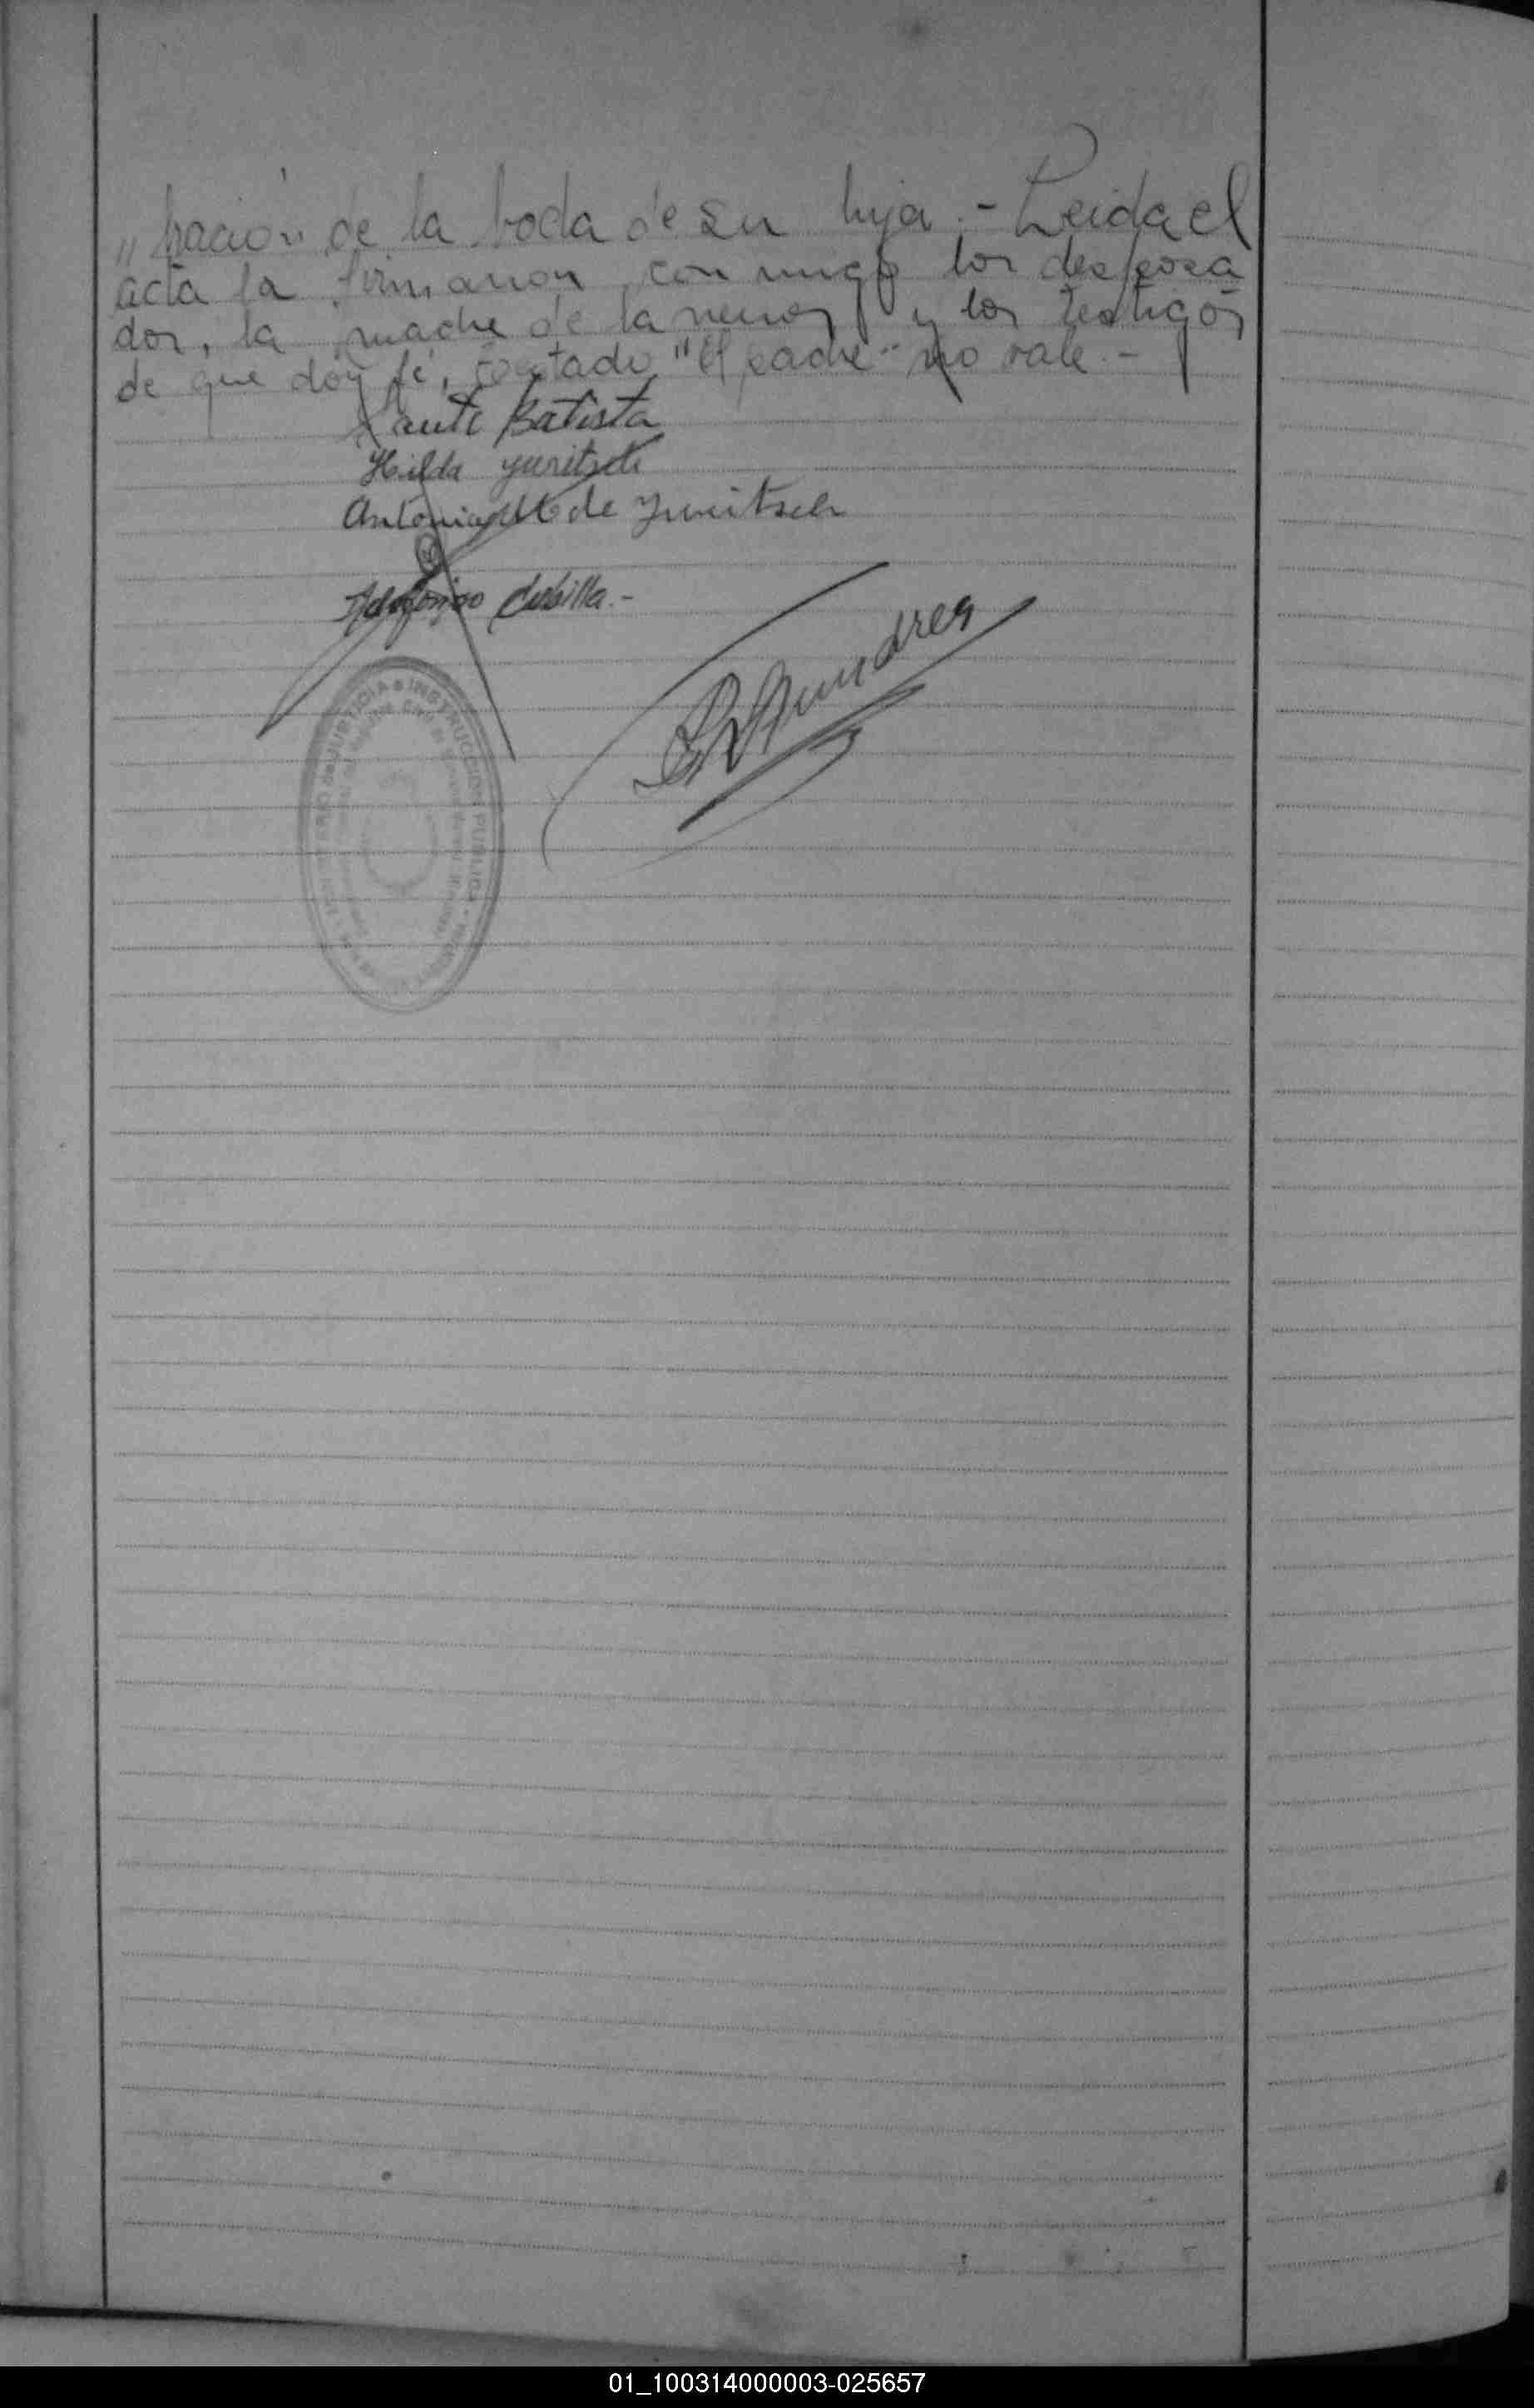 "bración de la boda de su hija.- Leida el
acta la firmaron conmigo los desposa
dos, la madre de la menor y los testigos
de que doy fé, testado "el padre" no vale.-
Batista
Hilda Yuritsch
Antonia de Yuritsch
Ildefonso Cubilla.-
JUSTICIA e INSTRUCCION PUBLICA
01_100314000003-025657